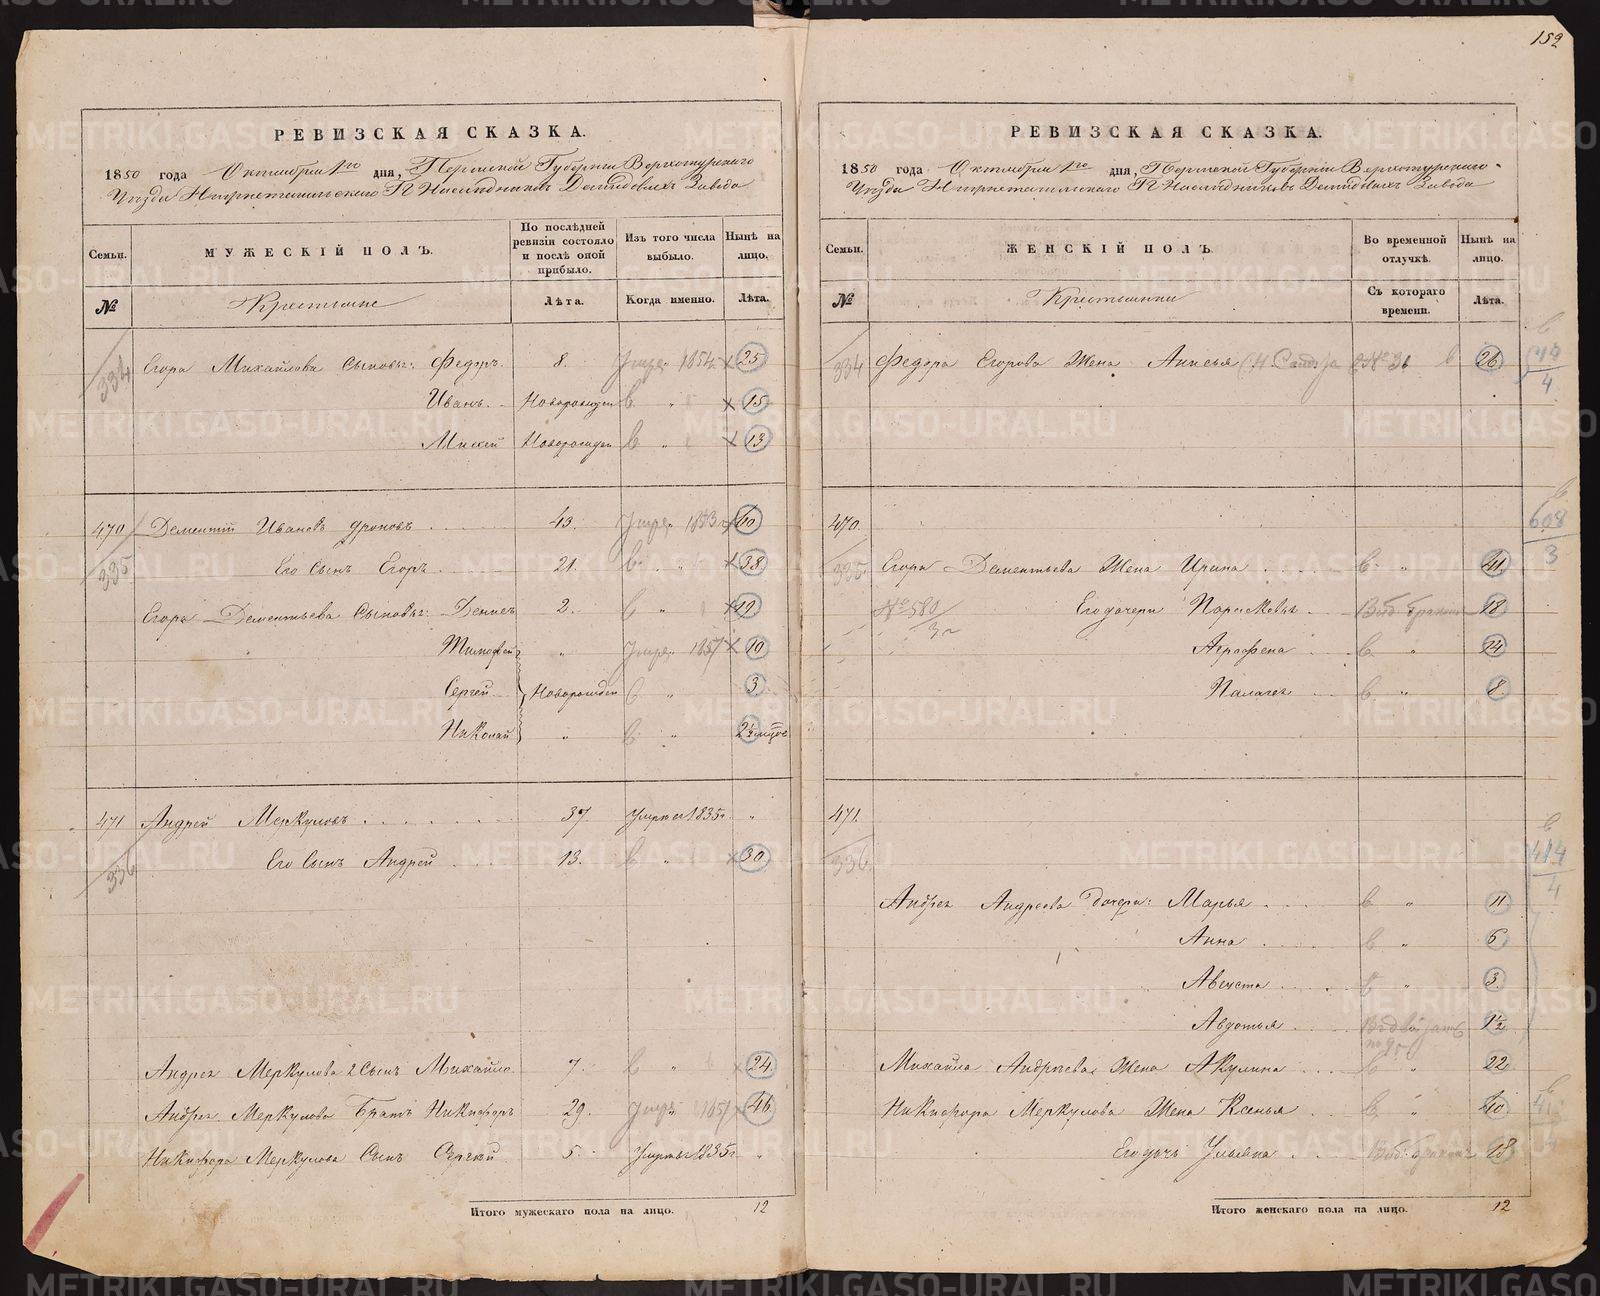 159
РЕВИЗСКАЯ СКАЗКА.
1850 года Октября 1го дня, Пермской Губерніи Верхотурскаго
Уѣзда Нижнетагильскаго Г Наслѣдниковъ Демидовыхъ Завода
Семьи. МУЖЕСКІЙ ПОЛЪ. По послѣдней ревизіи состояло и послѣ оной прибыло. Изъ того числа выбыло. Нынѣ на лицо.
№ Крестьяне Лѣта. Когда именно. Лѣта.
334 Егора Михайлова Сыновья: Федоръ. 8. 1854 25
Иванъ. Новорожден " 15
Новорожден " 13
470 Дементій Ивановъ 43. 60
335 Его Сынъ Егоръ 21. " 38
Егора Дементьева Сыновья: Денисъ 2. " 19
Тимофей " 1857 10
Сергей Новорожден " 3
Николай " " 2½ мѣсцов
471 Андрей Меркуловъ 37. Умре 1835г. "
336 Его Сынъ Андрей 13. " 30
Андрея Меркулова 2 Сынъ Михайло 7. " 24
Андрея Меркулова Братъ Никифоръ 29. 46
Никифора Меркулова Сынъ Сергей 5. Умре 1835г. "
Итого мужескаго пола на лицо. 12
РЕВИЗСКАЯ СКАЗКА.
1850 года Октября 1го дня, Пермской Губерніи Верхотурскаго
Уѣзда Нижнетагильскаго Г Наслѣдниковъ Демидовыхъ Завода
Семьи. ЖЕНСКІЙ ПОЛЪ Во временной отлучкѣ. Нынѣ на лицо.
№ Крестьянки Съ котораго времени. Лѣта.
334 Федора Егорова Жена Анисья 26
470.
608
3
335 Егора Дементьева Жена Ирина " 41
№ 580 Его дочери Парасковья 18
Аграфена " 14
Палагея " 8
471.
336
414
4
Андрея Андреева дочери: Марья " 11
Анна " 6
Августа " 3
Авдотья 1½
Михайла Андреева Жена Акулина " 22
Никифора Меркулова Жена Ксенья " 40
Его дочь Ульяна 18
Итого женскаго пола на лицо. 12
METRIKI.GASO-URAL.RU